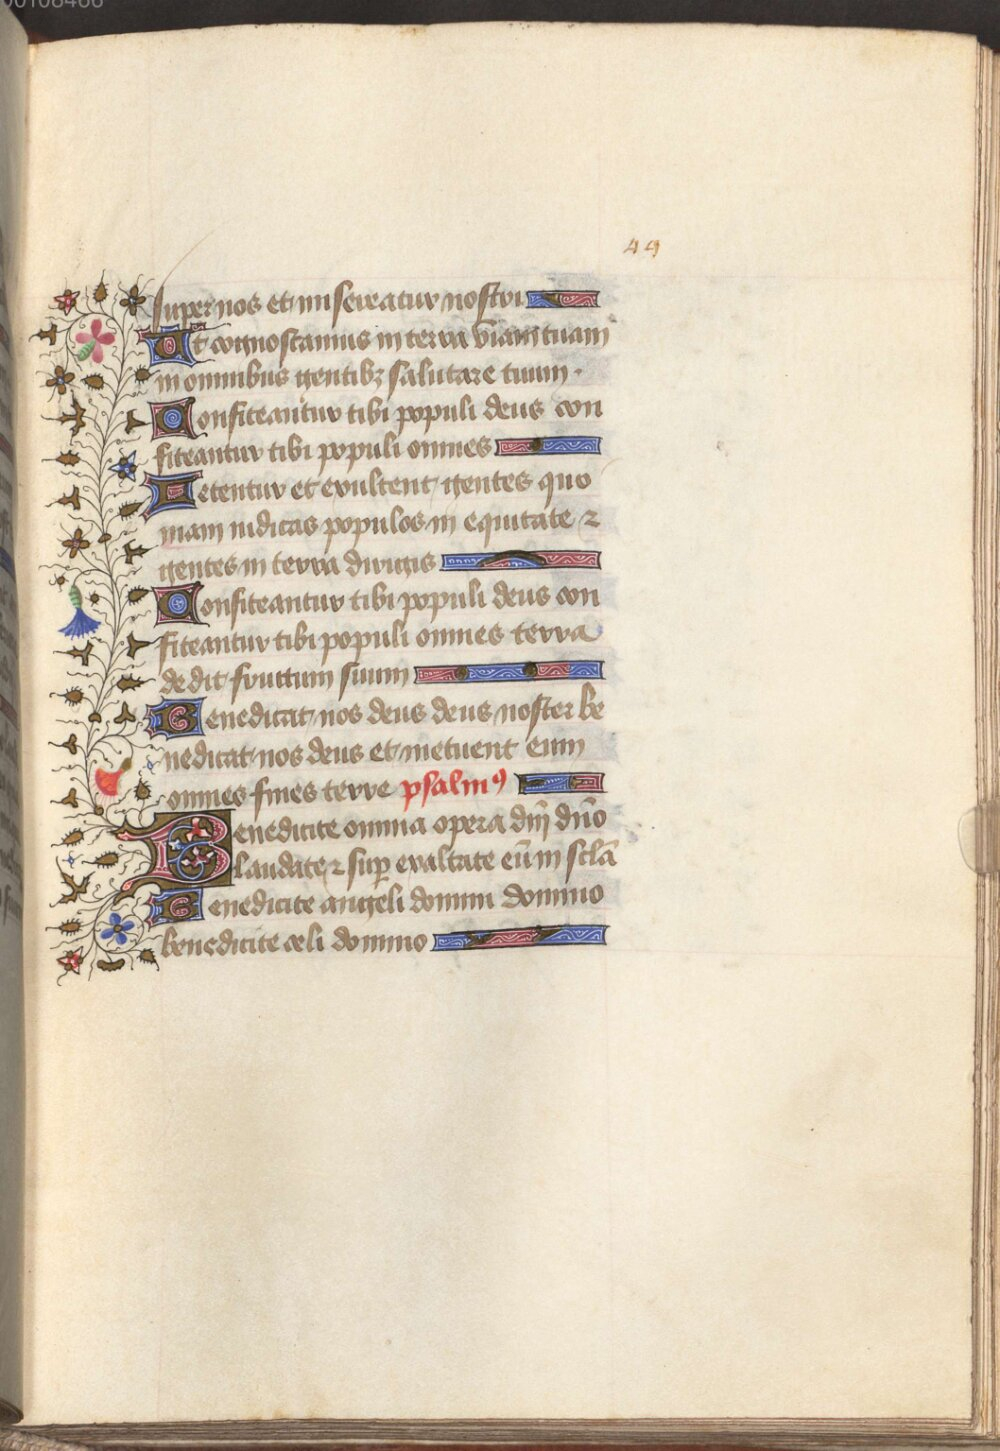 44
super nos et misereatur nostri
Ut cognoscamus in terra viam tuam
in omnibus gentibꝫ salutare tuum ·
Confiteantur tibi populi deus con
fiteantur tibi populi omnes
Letentur et exultent gentes quo
niam iudicas populos in equitate ⁊
gentes in terra dirigis
Confiteantur tibi populi deus con
fiteantur tibi populi omnes terra
dedit fructum suum
Benedicat nos deus deus noster be
nedicat nos deus et metuent eum
omnes fines terre psalmꝰ
Benedicite omnia opera dnī dn̄o
laudate ⁊ sup exaltate eū in sclā
Benedicite angeli domini domino
benedicite celi domino